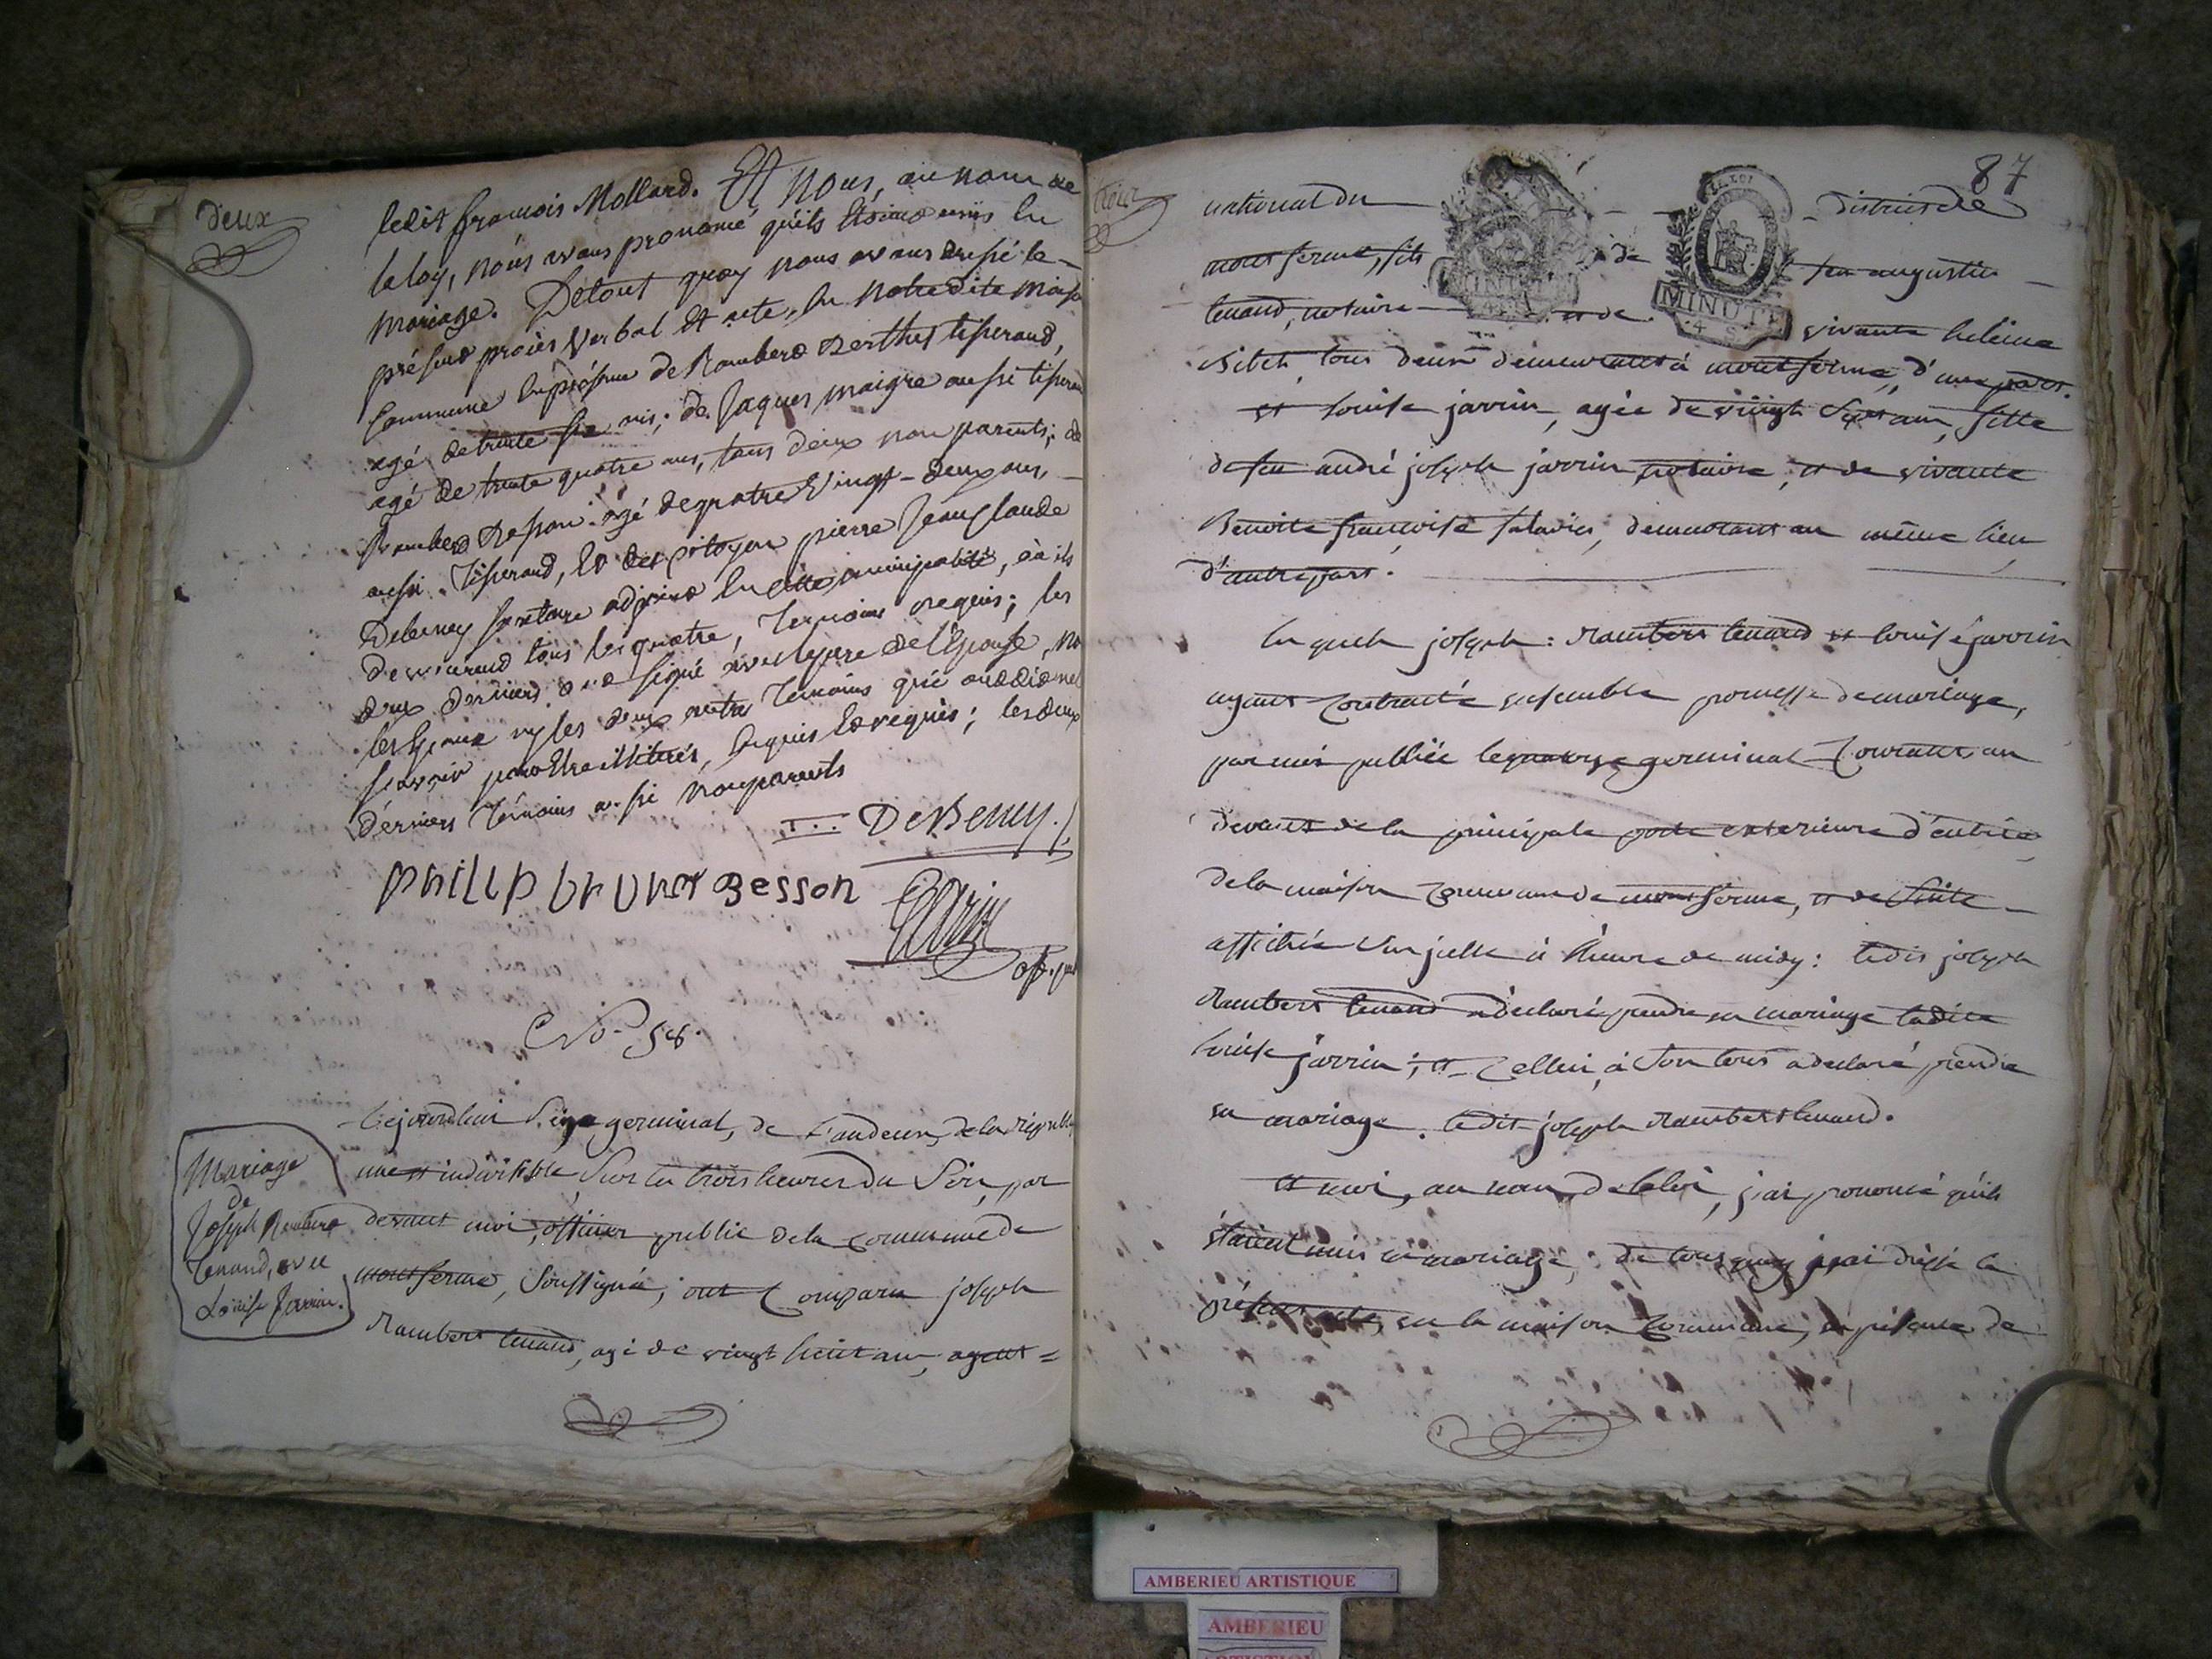 deux
ledit francois Mollard. Et nous, au nom de
la loy, nous avons prononcé qu'ils etoient unis en
mariage. De tout quoy nous avons dressé le
présent procès verbal et acte, en notredite maison
Commune en présence de Rambert Berthet tisserand,
agé de trente six ans; de Jaques maigre aussi tisserand
agé de trente quatre ans, tous deux non parents; de
Rambert agé de quatre Vingt-deux ans,
aussi tisserand, et du citoyen pierre Jean Claude
Debeney secrétaire adjoint en cette municipalité, où ils
demeurent tous les quatre, Temoins requis; les
deux derniers ont signé avec le pere de l'Epouse, non
les Epoux ny les deux autres Temoins qui ont dit ne
sçavoir pour être illiterés, enquis et requis; les deux
dérniers Témoins aussi non parents
DeBeney.
philip brunet Besson
Jarrin
off. pub
No. 58.
Mariage
de
Joseph Rambert
Tenand, avec
Loüise Jarrin.
Cejourdhui seize germinal, de l'an deux, de la républ.
une et indivisible, sur les trois heures du soir, par
devant moi, officier public de la commune de
montferme, soussigné; ont comparu joseph
Rambert tenand, agé de vingt huit ans, agent =
trois
87
national du district de
montferme, fils de feu augustin
tenand, notaire et de vivante heleine
MINUTE
MINUTE
4 S
sibet, tous deux demeurants à montferme, d'une part.
et louise jarrin, agée de vingt sept ans, fille
de feu andré joseph jarrin notaire, et de vivante
Benoite francoise demeurant au même lieu
d'autre part.
lesquels joseph: Rambert tenand et louise jarrin
ayant contracté ensemble promesse de mariage,
par moi publiée le quatorze germinal courant, au
devant de la principale porte exterieure d'entrée
de la maison commune de montferme, et de suite
affichée sur icelle à l'heure de midy: ledit joseph
Rambert tenand a déclaré prendre en mariage ladite
louise jarrin; et celle ci, à son tour a déclaré prendre
en mariage ledit joseph Rambert tenand.
et moi, au nom de la loi, j'ai prononcé qu'ils
étaient unis en mariage; de tout quoy j'ai dressé le
présent acte, en la maison commune, en présence de
AMBERIEU ARTISTIQUE
AMBERIEU
ARTISTIQUE